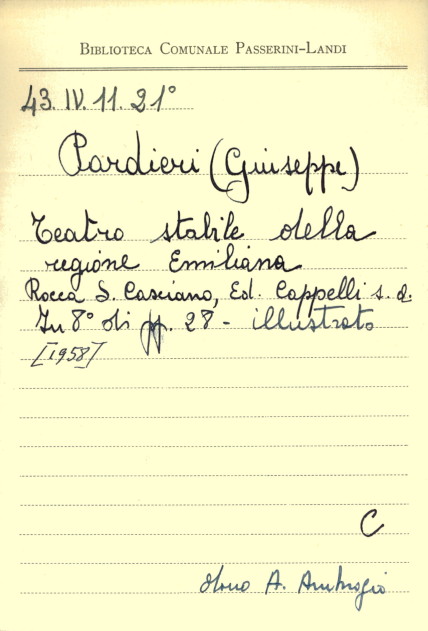 BIBLIOTECA COMUNALE PASSERINI-LANDI
43. IV. 11. 21°
Pardieri (Giuseppe)
Teatro stabile della
regione Emiliana
Rocca S. Casciano, Ed. Cappelli s. d.
In 8° di pp. 28 - illustrato
[1958]
C
dono A. Ambrogio